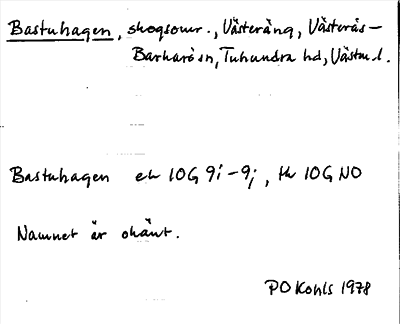 Bastuhagen, skogsomr., Västeräng, Västerås-
Barkarö sn, Tuhundra hd, Västm l.
Bastuhagen ek 10G 9i-9j, tk 10G NO
Namnet är okänt.
PO Kohls 1978